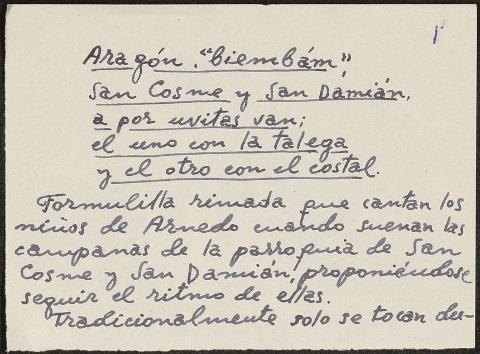 Aragón, "biembám",
San Cosme y San Damián,
a por uvitas van;
el uno con la talega
y el otro con el costal.
Formulilla rimada que cantan los
niños de Arnedo cuando suenan las
campanas de la parroquia de San
Cosme y San Damián, proponiéndose
seguir el ritmo de ellas.
Tradicionalmente solo se tocan du-